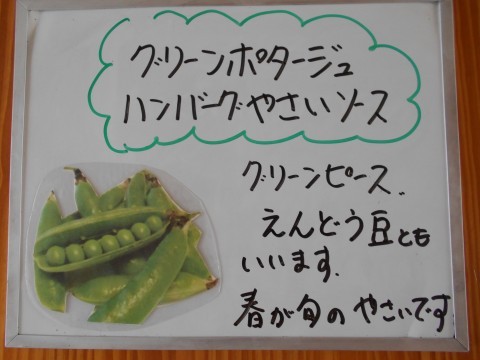 グリーンポタージュ
ハンバーグやさいソース
グリーンピース、
えんどう豆とも
いいます。
春が旬のやさいです